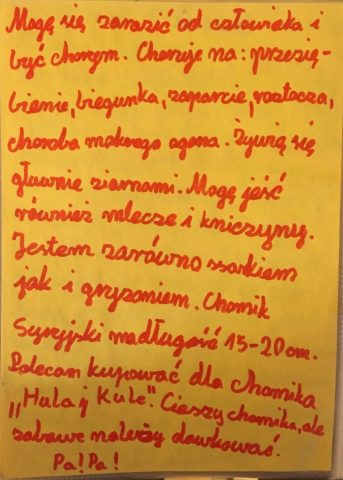 Mogę się zarazić od człowieka i
być chorym. Choruje na: przezię-
bienie, biegunka, zaparcie, roztocza,
choroba mokrego ogona. Żywię się
głównie ziarnami. Mogę jeść
również mlecze i kniczyny.
Jestem zarówno ssakiem
jak i gryzoniem. Chomik
Syryjski madługość 15-20 cm.
Polecam kupować dla Chomika
,,Hulaj Kule". Cieszy chomika, ale
zabawe należy dawkować.
Pa! Pa!